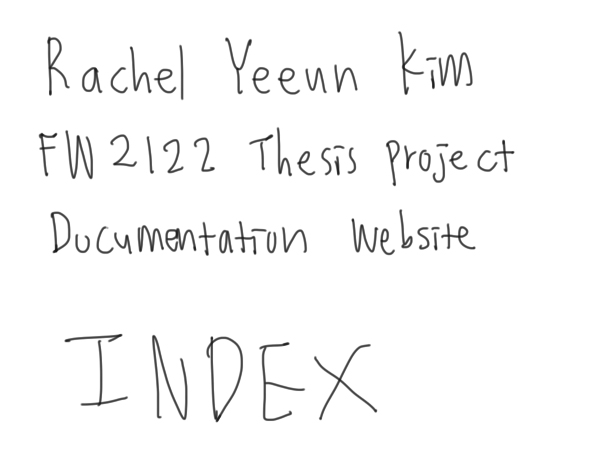 Rachel Yeeun Kim
FW2122 Thesis project
Documentation website
INDEX